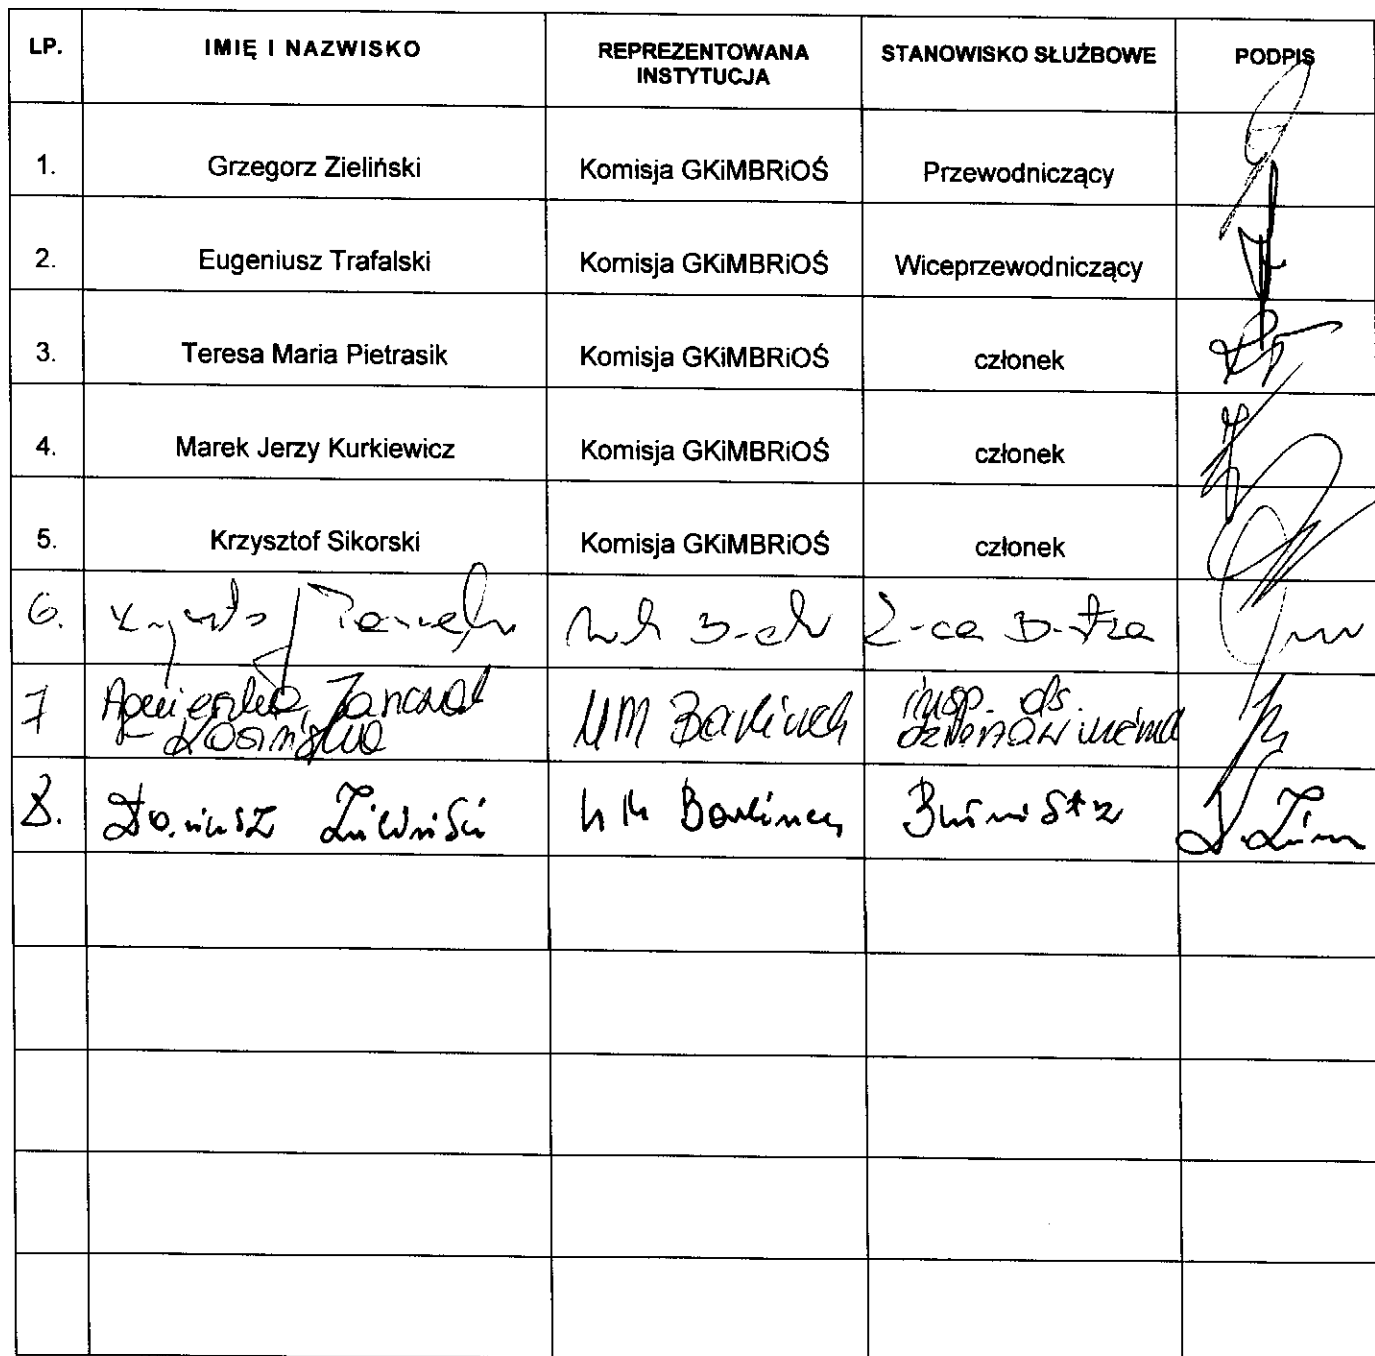 LP. IMIĘ I NAZWISKO REPREZENTOWANA INSTYTUCJA STANOWISKO SŁUŻBOWE PODPIS
1. Grzegorz Zieliński Komisja GKiMBRiOŚ Przewodniczący
2. Eugeniusz Trafalski Komisja GKiMBRiOŚ Wiceprzewodniczący
3. Teresa Maria Pietrasik Komisja GKiMBRiOŚ członek
4. Marek Jerzy Kurkiewicz Komisja GKiMBRiOŚ członek
5. Krzysztof Sikorski Komisja GKiMBRiOŚ członek
6. Z-ca B-trza
7 UM Barlinek insp. ds.
8. Dariusz Zieliński UM Barlinek Burmistrz